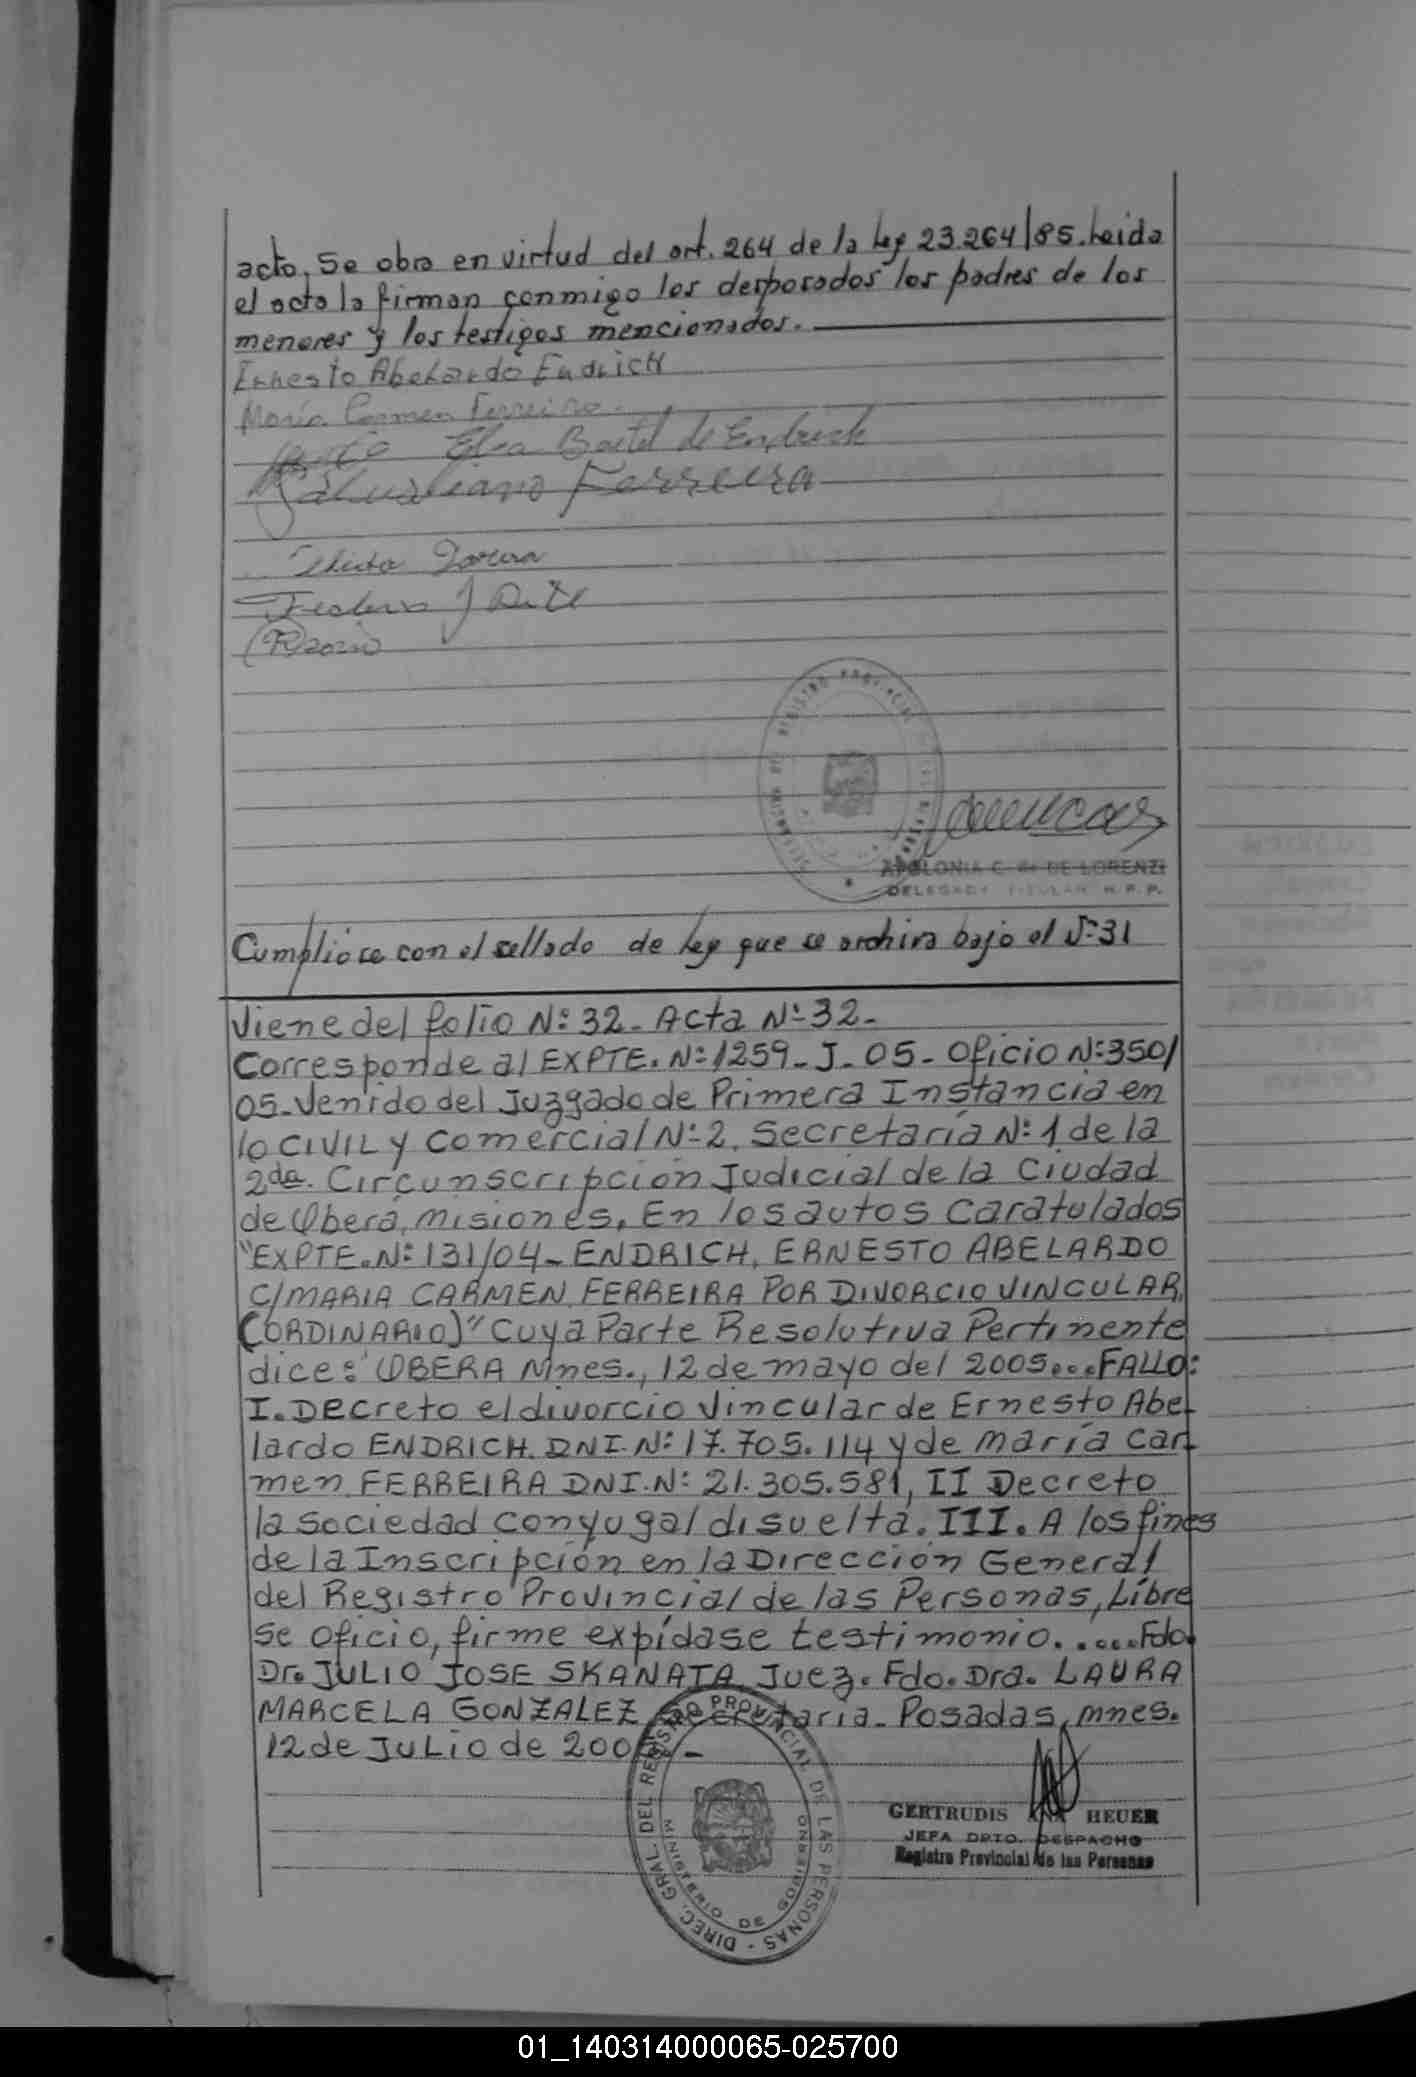 acto. Se obra en virtud del art. 264 de la Ley 23.264/85. Leida
el acto la firman conmigo los desposados los padres de los
menores y los testigos mencionados.
Ernesto Abelardo Endrich
María Carmen Ferreira.
Elsa Bartel de Endrich
Ferreira
REGISTRO PROVINCIAL
APOLONIA C. DE LORENZI
DELEGADA TITULAR R. P. P.
Cumplióse con el sellado de Ley que se archiva bajo el Nº 31
Viene del folio Nº 32- Acta Nº 32-
Corresponde al EXPTE. Nº 1259-J-05- Oficio Nº 350/
05-Venido del Juzgado de Primera Instancia en
lo CIVIL y Comercial Nº 2, Secretaría Nº 1 de la
2da. Circunscripción Judicial de la Ciudad
de Oberá, Misiones, En los autos Caratulados
"EXPTE. Nº 131/04- ENDRICH, ERNESTO ABELARDO
C/MARIA CARMEN FERREIRA POR DIVORCIO VINCULAR,
(ORDINARIO)" Cuya Parte Resolutiva Pertinente
dice: "OBERA Mnes., 12 de mayo del 2005...FALLO:
I. Decreto el divorcio Vincular de Ernesto Abe-
lardo ENDRICH, DNI. Nº 17.705.114 y de María Car-
men FERREIRA DNI. Nº 21.305.581, II Decreto
la sociedad conyugal disuelta. III. A los fines
de la Inscripción en la Dirección General
del Registro Provincial de las Personas, Líbre
se oficio, firme expídase testimonio......Fdo.
Dr. JULIO JOSE SKANATA, Juez. Fdo. Dra. LAURA
MARCELA GONZALEZ Secretaria- Posadas, mnes.
12 de JULIO de 200 -
DIREC. GRAL. DEL REGISTRO PROVINCIAL DE LAS PERSONAS
MINISTERIO DE GOBIERNO
GERTRUDIS ANA HEUER
JEFA DPTO. DESPACHO
Registro Provincial de las Personas
01_140314000065-025700